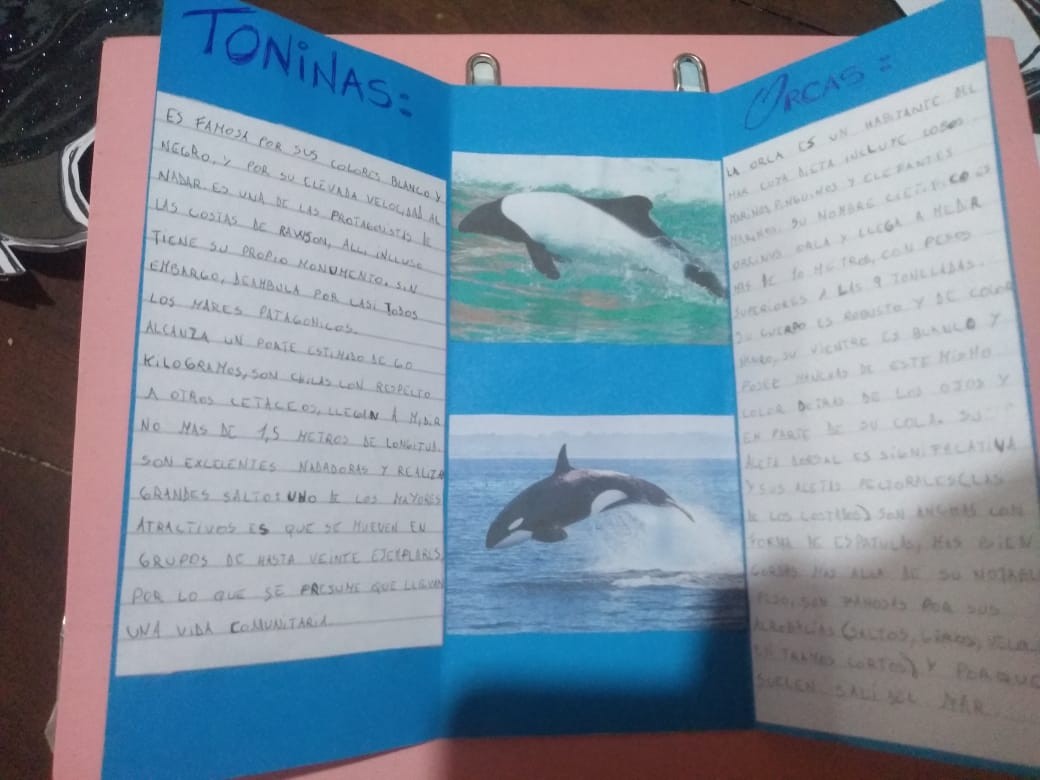 TONINAS:
ES FAMOSA POR SUS COLORES BLANCO Y
NEGRO, Y POR SU ELEVADA VELOCIDAD AL
NADAR. ES UNA DE LAS PROTAGONISTAS DE
LAS COSTAS DE RAWSON, ALLI INCLUSO
TIENE SU PROPIO MONUMENTO. SIN
EMBARGO, DEAMBULA POR CASI TODOS
LOS MARES PATAGONICOS.
ALCANZA UN PORTE ESTIMADO DE 60
KILOGRAMOS, SON CHICAS CON RESPECTO
A OTROS CETACEOS, LLEGAN A MEDIR
NO MAS DE 1,5 METROS DE LONGITUD.
SON EXCELENTES NADADORAS Y REALIZAN
GRANDES SALTOS UNO DE LOS MAYORES
ATRACTIVOS ES QUE SE MUEVEN EN
GRUPOS DE HASTA VEINTE EJEMPLARES,
POR LO QUE SE PRESUME QUE LLEVAN
UNA VIDA COMUNITARIA.
ORCAS:
LA ORCA ES UN HABITANTE DEL
MAR CUYA DIETA INCLUYE LOBOS
MARINOS PINGUINOS Y ELEFANTES
MARINOS. SU NOMBRE CIETIFICO ES
ORCINUS ORCA Y LLEGA A MEDIR
MAS DE 10 METROS, CON PESOS
SUPERIORES A LAS 9 TONELADAS.
SU CUERPO ES ROBUSTO Y DE COLOR
NEGRO, SU VIENTRE ES BLANCO Y
POSEE MANCHAS DE ESTE MISMO
COLOR DETRAS DE LOS OJOS Y
EN PARTE DE SU COLA. SU
ALETA DORSAL ES SIGNIFICATIVA
Y SUS ALETAS PECTORALES (LAS
DE LOS COSTADOS) SON ANCHAS CON
FORMA DE ESPATULAS, MAS BIEN
MAS ALLA DE SU NOTABLE
PESO, SON FAMOSAS POR SUS
ACROBACIAS (SALTOS, GIROS,
EN TRAMOS CORTOS) Y PORQUE
SUELEN SALI DEL MAR